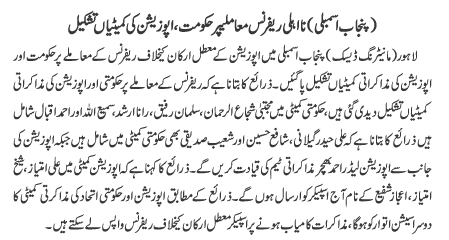 (پنجاب اسمبلی) نااہلی ریفرنس معاملہ پر حکومت، اپوزیشن کی کمیٹیاں تشکیل
لاہور (مانیٹرنگ ڈیسک) پنجاب اسمبلی میں اپوزیشن کے معطل ارکان کیخلاف ریفرنس کے معاملے پر حکومت اور
اپوزیشن کی مذاکراتی کمیٹیاں تشکیل پا گئیں۔ ذرائع کا بتانا ہے کہ ریفرنس کے معاملے پر حکومتی اور اپوزیشن کی مذاکراتی
کمیٹیاں تشکیل دیدی گئی ہیں، حکومتی کمیٹی میں مجتبیٰ شجاع الرحمان، سلمان رفیق، رانا ارشد، سمیع اللہ اور احمد اقبال شامل ہیں
ذرائع کا بتانا ہے کہ علی حیدر گیلانی، شافع حسین اور شعیب صدیقی بھی حکومتی کمیٹی میں شامل ہیں جبکہ اپوزیشن کی
جانب سے اپوزیشن لیڈر احمد بھچر مذاکراتی ٹیم کی قیادت کریں گے۔ ذرائع کا کہنا ہے کہ اپوزیشن کمیٹی میں علی امتیاز، شیخ
امتیاز، اعجاز شفیع کے نام آج اسپیکر کو ارسال ہوں گے۔ ذرائع کے مطابق اپوزیشن اور حکومتی اتحاد کی مذاکراتی کمیٹی کا
دوسرا سیشن اتوار کو ہوگا، مذاکرات کامیاب ہونے پر اسپیکر معطل ارکان کیخلاف ریفرنس واپس لے سکتے ہیں۔